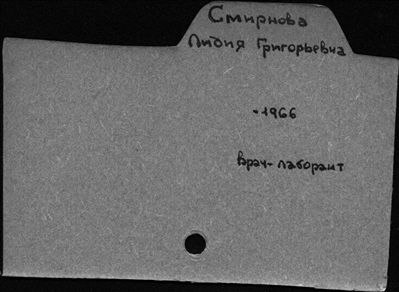 Смирнова
Лидия Григорьевна
-1966
Врач-лаборант